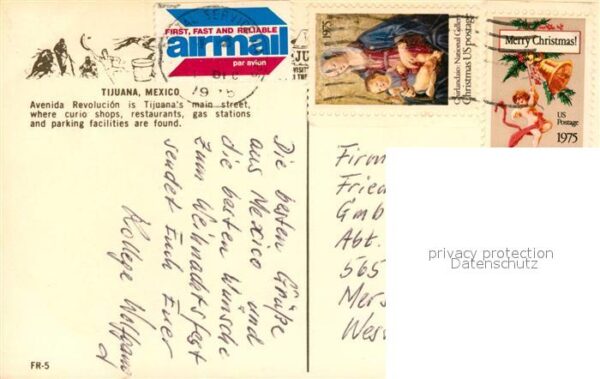 FIRST, FAST AND RELIABLE
airmail
par avion
1975
Ghirlandaio: National Gallery
Christmas US postage
Merry Christmas!
US
Postage
1975
TIJUANA, MEXICO
Avenida Revolución is Tijuana's main street,
where curio shops, restaurants, gas stations
and parking facilities are found.
Die besten Grüße
aus Mexico und
die besten Wünsche
zum Weihnachtsfest
sendet Euch Euer
Kollege
Firm
Fried
Gmb
Abt.
565
Mers
Wes
privacy protection
Datenschutz
FR-5